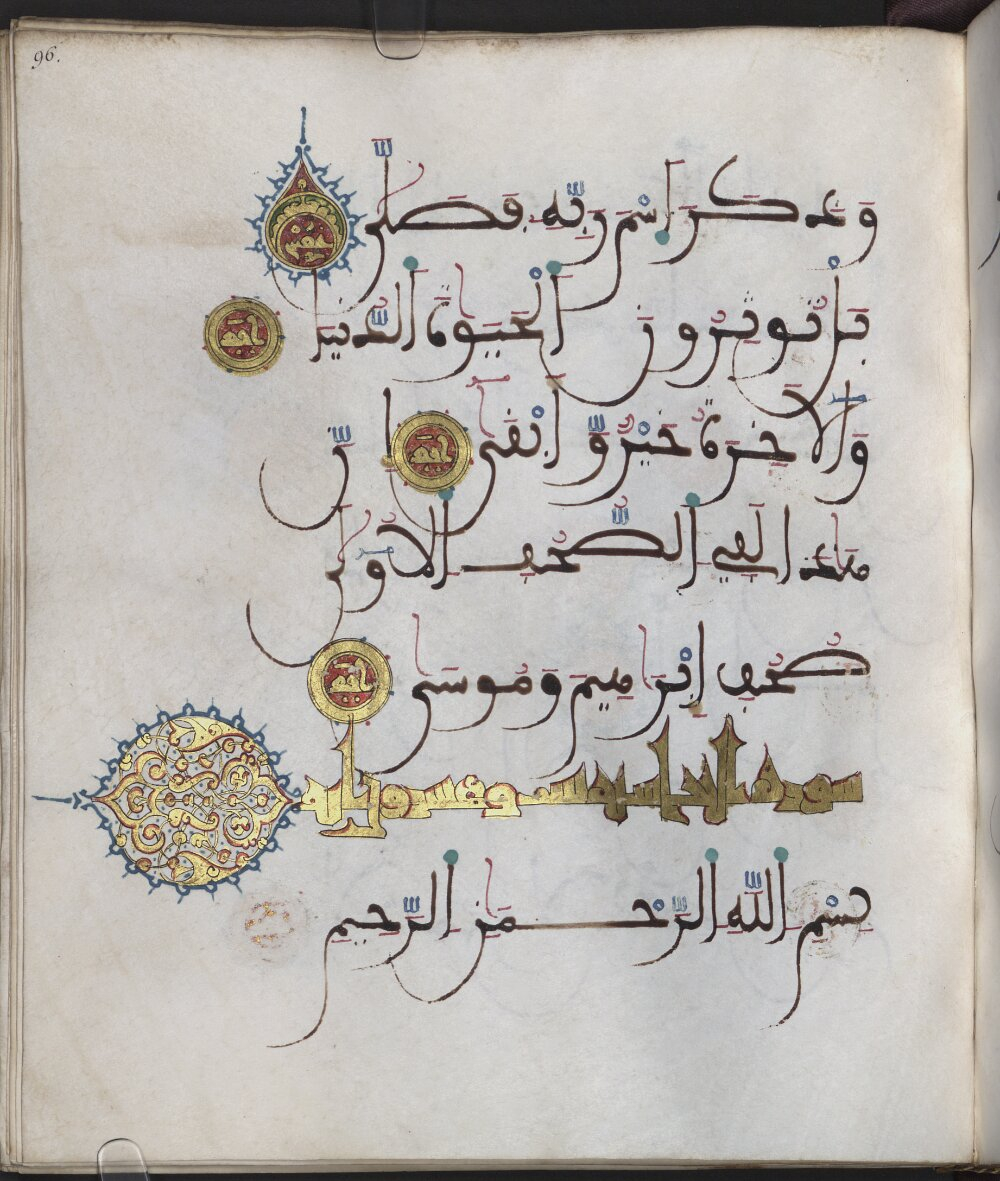 96.
وَذَكَرَ اَسْمَ رَبِّهِ فَصَلَّى
بَلْ تُوثِرُونَ اَلْحَيَوٰةَ اَلدُّنْيَا
وَالَاخِرَةُ خَيْرٌ وَّأَبْقَى إِنَّ
هَذَا لَفِي اَلصُّحُفِ اِلُاولَى
صُحُفِ إِبْرَاهِيمَ وَمُوسَى
سورة الغاشية
بِسْمِ اِللَّهِ اِلرَّحْمَنِ اِلرَّحِيمِ